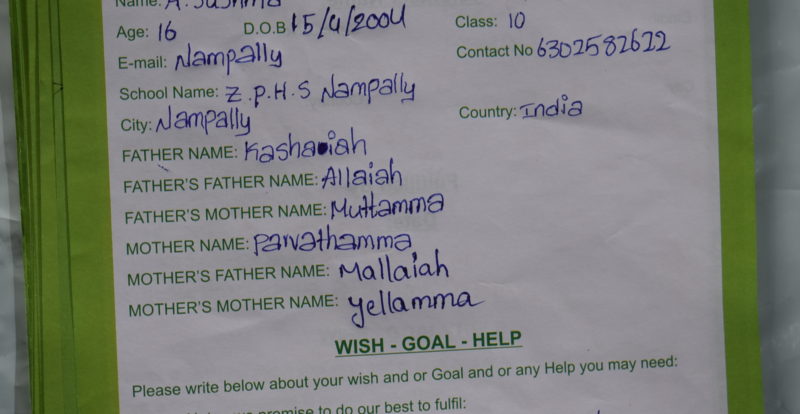 Name: A. Sushma
Age: 16 D.O.B 15/4/2004 Class: 10
E-mail: Nampally Contact No 6302582622
School Name: Z.P.H.S Nampally
City: Nampally Country: India
FATHER NAME: Kashaiah
FATHER'S FATHER NAME: Allaiah
FATHER'S MOTHER NAME: Muttamma
MOTHER NAME: Parvathamma
MOTHER'S FATHER NAME: Mallaiah
MOTHER'S MOTHER NAME: yellamma
WISH - GOAL - HELP
Please write below about your wish and or Goal and or any Help you may need:
promise to do our best to fulfil: